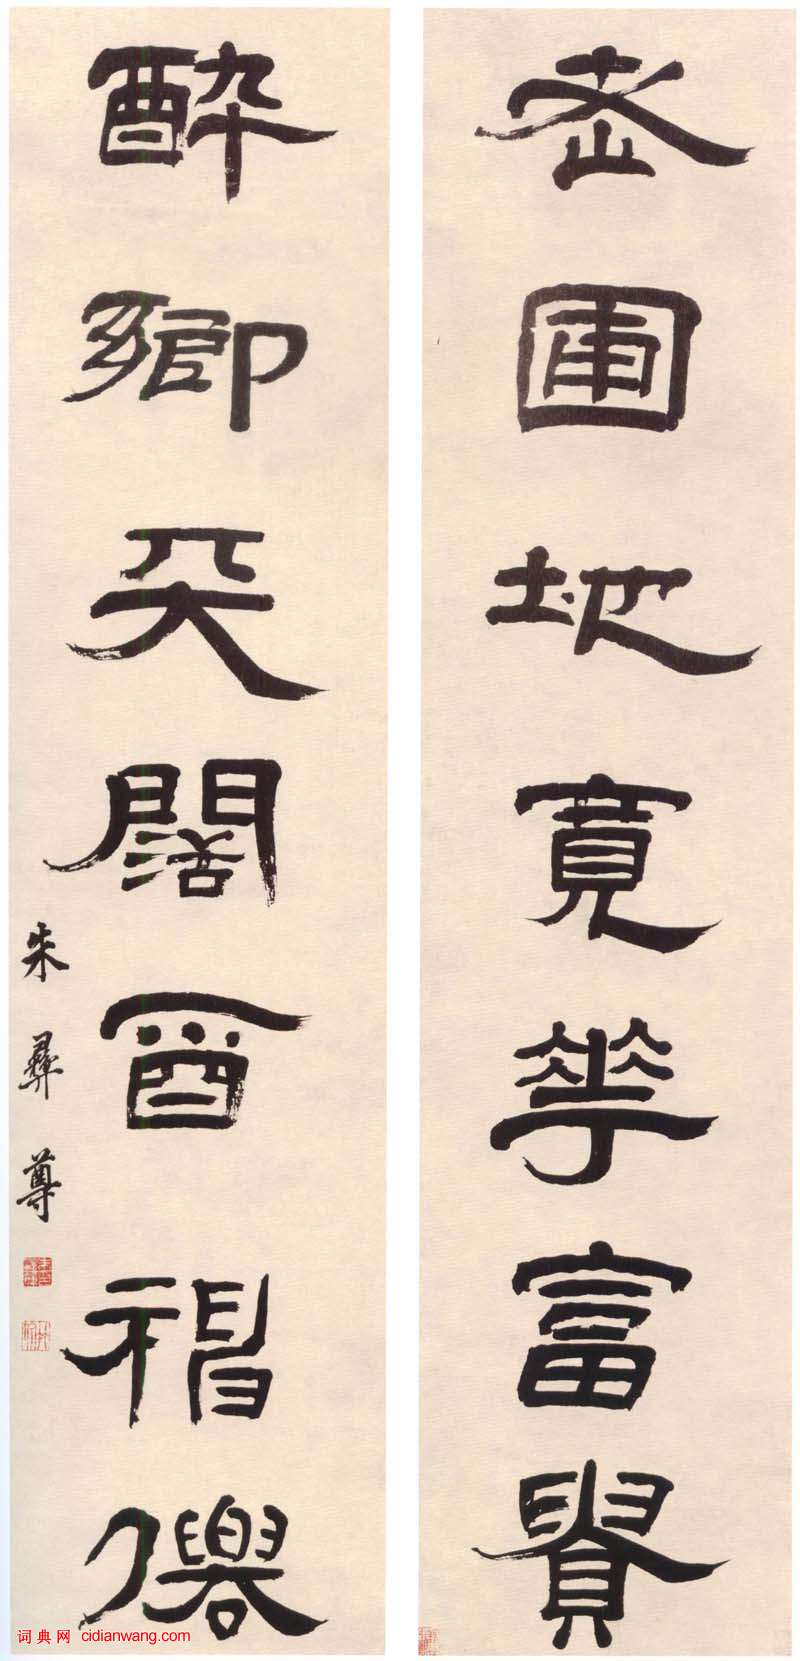 老圃地寬華富貴
醉鄉天闊酋神僊
朱彝尊
词典网 cidianwang.com